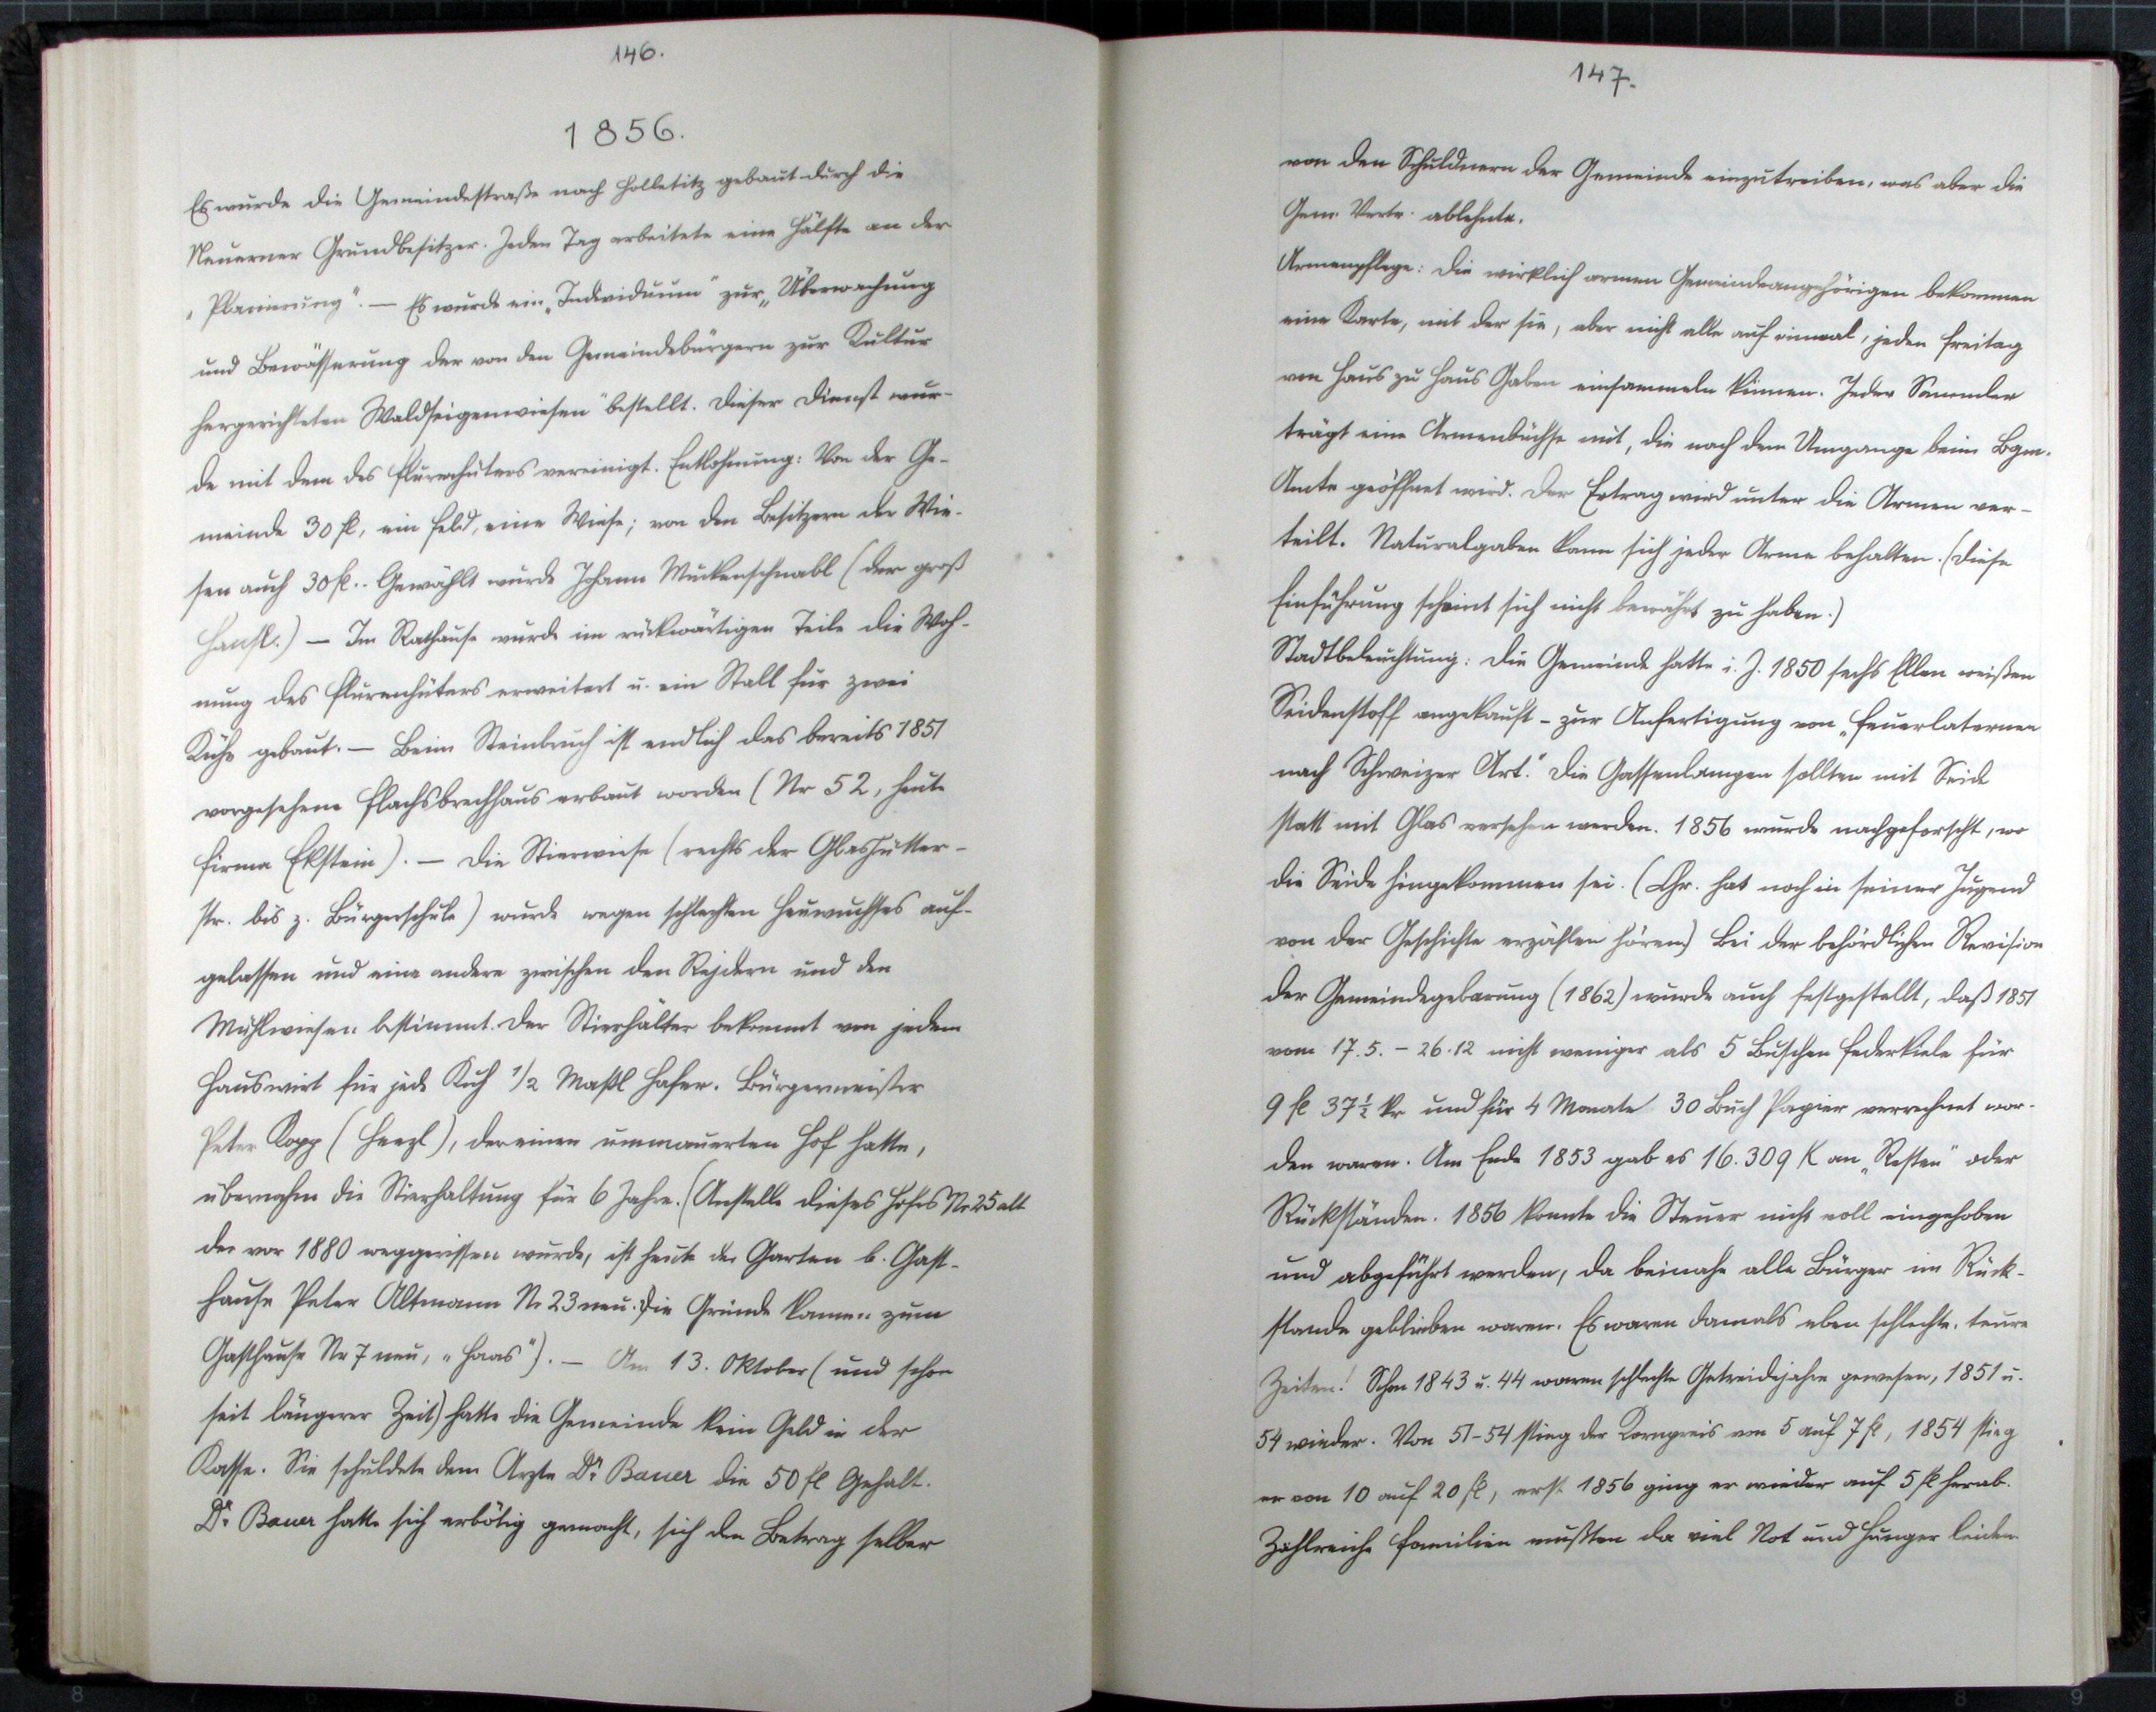 146.
1856.
Es wurde die Gemeindestraße nach Holletitz gebaut durch die
Neuerner Grundbesitzer. Jeden Tag arbeitete eine Hälfte an der
„Planierung". — Es wurde ein „Individuum" zur „Überwachung
und Bewässerung der von den Gemeindebürgern zur Kultur
hergerichteten Waldseigenwiesen" bestellt. Dieser Dienst wur-
de mit dem des Flurenhüters vereinigt. Entlohnung: Von der Ge-
meinde 30 fl, ein Feld, eine Wiese; von den Besitzern der Wie-
sen auch 30 fl.. Gewählt wurde Johann Muckenschnabl (der groß
Hansl.) — Im Rathause wurde im rückwärtigen Teile die Woh-
nung des Flurenhüters erweitert u. ein Stall für zwei
Kühe gebaut. — Beim Steinbruch ist endlich das bereits 1851
vorgesehene Flachsbrechhaus erbaut worden (Nr 52, heute
Firma Ekstein). — Die Stierwiese (rechts der Glashütter-
str. bis z. Bürgerschule) wurde wegen schlechten Heuwuchses auf-
gelassen und eine andere zwischen den und den
Mühlwiesen bestimmt. Der Stierhälter bekommt von jedem
Hauswirt für jede Kuh 1/2 Maßl Hafer. Bürgermeister
Peter Kopp (), der einen ummauerten Hof hatte,
übernahm die Stierhaltung für 6 Jahre. (Anstelle dieses Hofes Nr 25 alt
der vor 1880 weggerissen wurde, ist heute der Garten b. Gast-
hause Peter Altmann Nr 23 neu. Die Gründe kamen zum
Gasthause Nr 7 neu, „Haas"). — Am 13. Oktober (und schon
seit längerer Zeit) hatte die Gemeinde kein Geld in der
Kasse. Sie schuldete dem Arzte Dr Bauer die 50 fl Gehalt.
Dr Bauer hatte sich erbötig gemacht, sich den Betrag selber
147.
von den Schuldnern der Gemeinde einzutreiben, was aber die
Gem. Vertr. ablehnte.
Armenpflege: Die wirklich armen Gemeindeangehörigen bekommen
eine Karte, mit der sie, aber nicht alle auf einmal, jeden Freitag
von Haus zu Haus Gaben einsammeln können. Jeder Sammler
trägt eine Armenbüchse mit, die nach dem Umgange beim Bgm.
Amte geöffnet wird. Der Ertrag wird unter die Armen ver-
teilt. Naturalgaben kann sich jeder Arme behalten. (Diese
Einführung scheint sich nicht bewährt zu haben.)
Stadtbeleuchtung: Die Gemeinde hatte i. J. 1850 sechs Ellen weißen
Seidenstoff angekauft - zur Anfertigung von „Feuerlaternen
nach Schweizer Art." Die Gassenlampen sollten mit Seide
statt mit Glas versehen werden. 1856 wurde nachgeforscht, wo
die Seide hingekommen sei. (Chr. hat noch in seiner Jugend
von der Geschichte erzählen hören.) Bei der behördlichen Revision
der Gemeindegebarung (1862) wurde auch festgestellt, daß 1851
vom 17.5. - 26.12 nicht weniger als 5 Buschen Federkiele für
9 fl 37 ½ kr und für 4 Monate 30 Buch Papier verrechnet wor-
den waren. Am Ende 1853 gab es 16.309 K an „Resten" oder
Rückständen. 1856 konnte die Steuer nicht voll eingehoben
und abgeführt werden, da beinahe alle Bürger im Rück-
stande geblieben waren. Es waren damals eben schlechte, teure
Zeiten! Schon 1843 u. 44 waren schlechte Getreidejahre gewesen, 1851 u.
54 wieder. Von 51-54 stieg der Kornpreis von 5 auf 7 fl, 1854 stieg
er von 10 auf 20 fl, erst 1856 ging er wieder auf 5 fl herab.
Zahlreiche Familien mußten da viel Not und Hunger leiden.
8
8
9